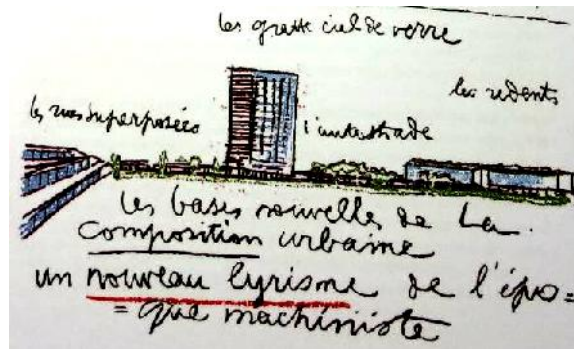 les gratte ciel de verre
les redents
les rues superposées
l'autostrade
les bases nouvelles de la
composition urbaine
un nouveau lyrisme de l'épo=
=que machiniste